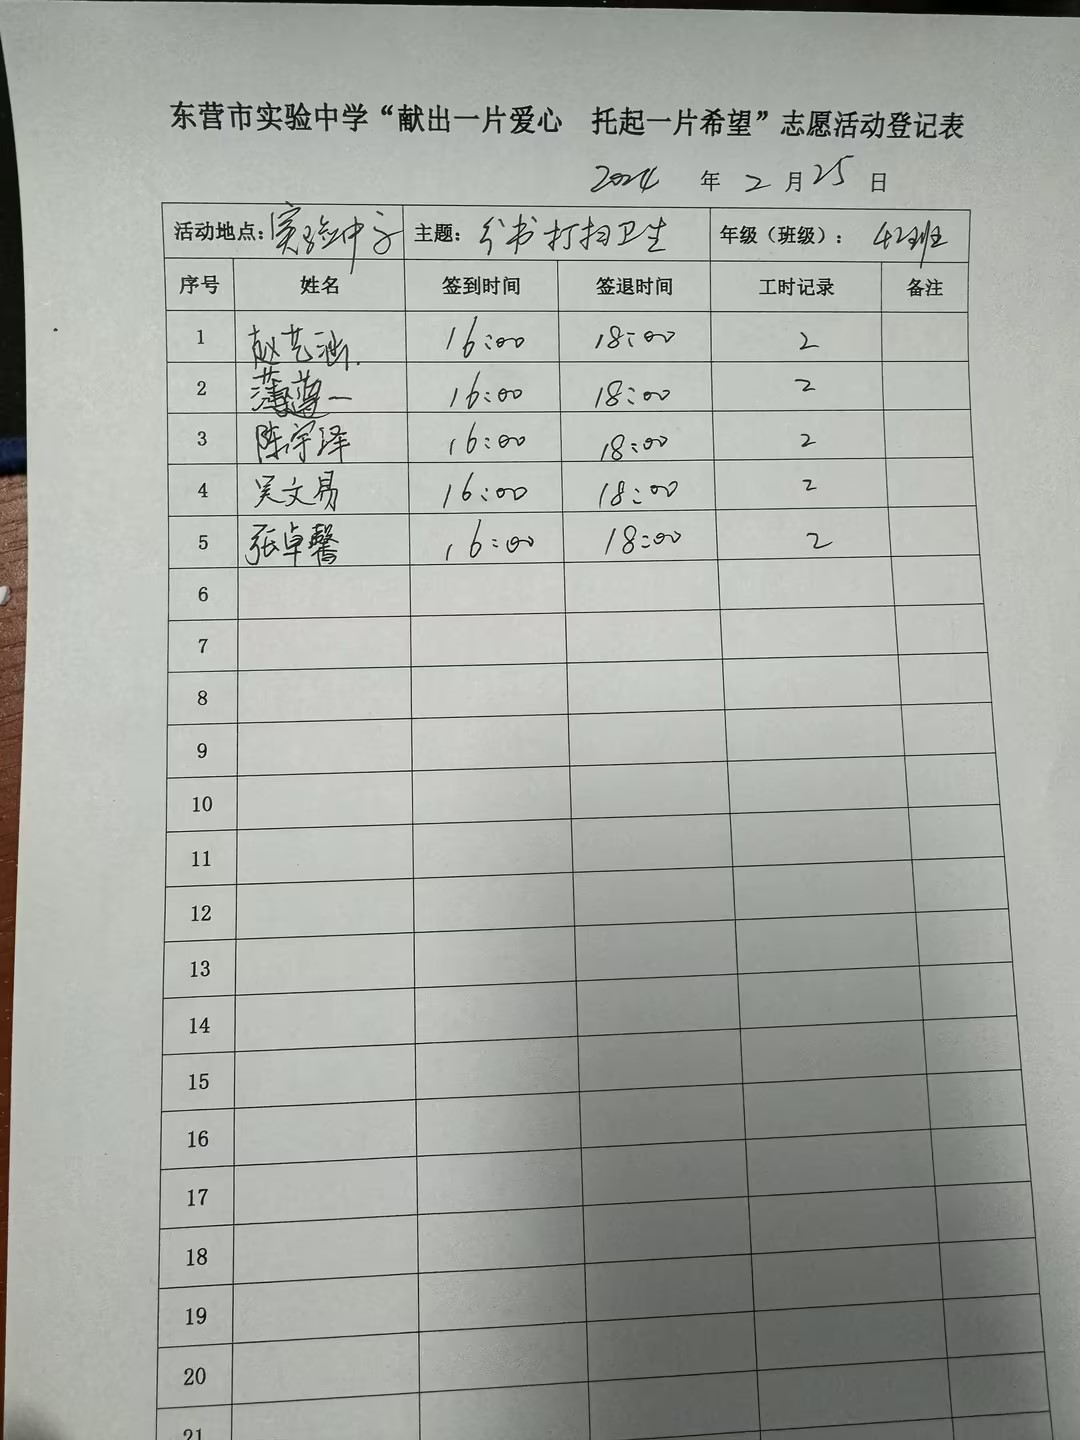 东营市实验中学“献出一片爱心 托起一片希望”志愿活动登记表
2024 年 2 月 25 日
活动地点：实验中学 主题：分书打扫卫生 年级（班级）： 42班
序号 姓名 签到时间 签退时间 工时记录 备注
1 赵艺涵 16:00 18:00 2
2 薄遵一 16:00 18:00 2
3 陈宇泽 16:00 18:00 2
4 吴文易 16:00 18:00 2
5 张卓馨 16:00 18:00 2
6
7
8
9
10
11
12
13
14
15
16
17
18
19
20
21